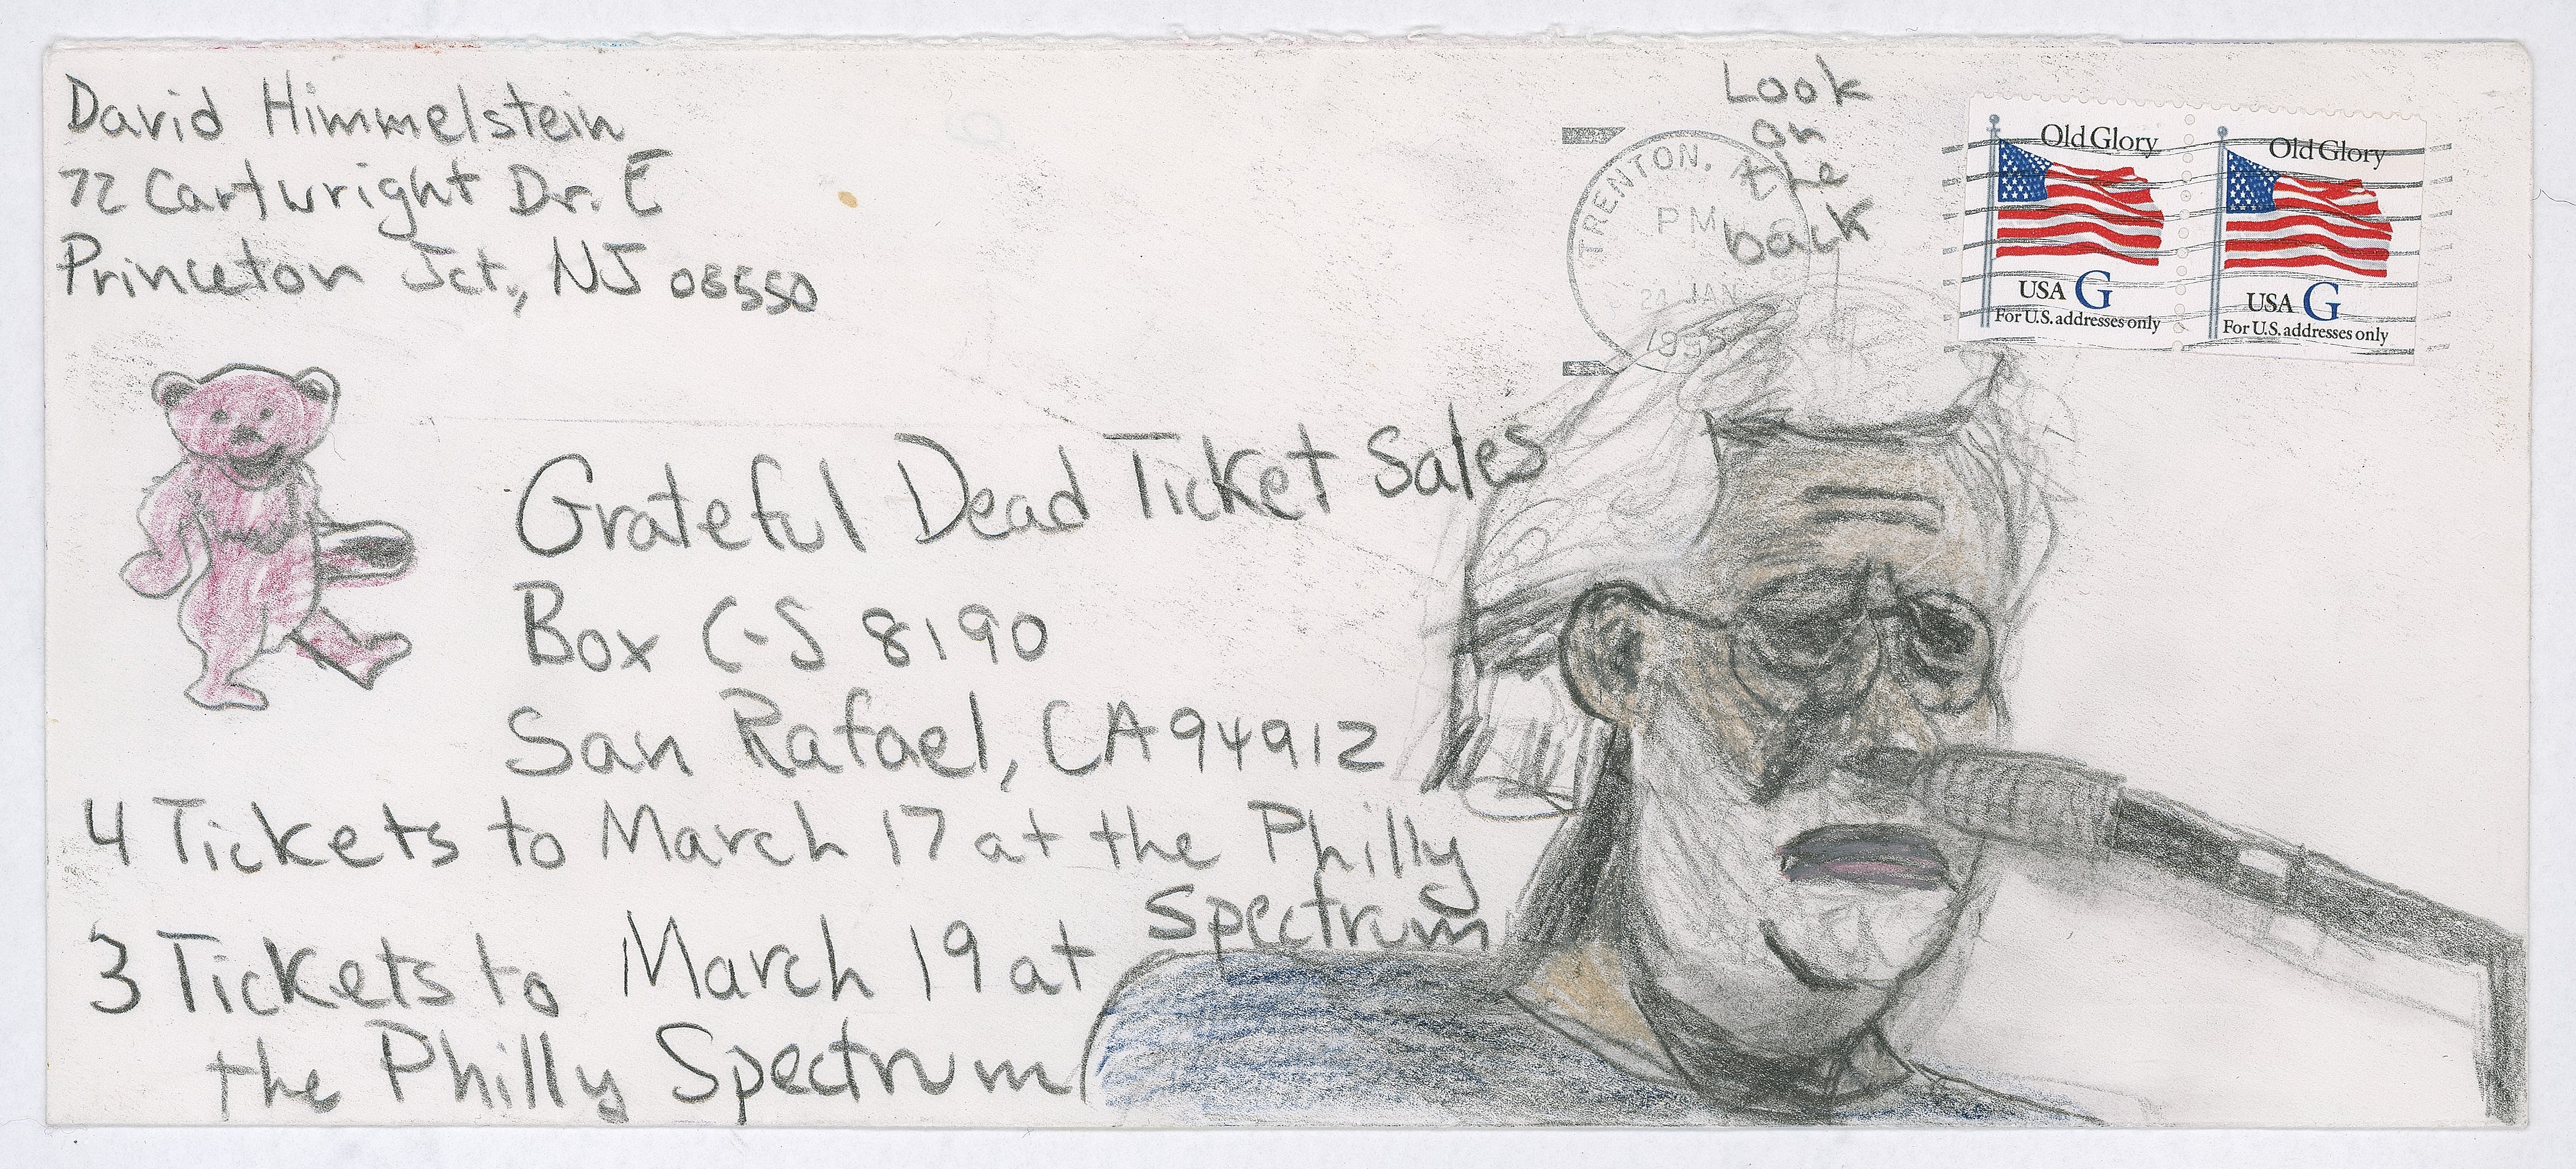 David Himmelstein
72 Cartwright Dr. E
Princeton Jct., NJ 08550
Look
on
the
back
TRENTON,
PM
JAN
1995
Old Glory
USA G
For U.S. addresses only
Old Glory
USA G
For U.S. addresses only
Grateful Dead Ticket Sales
Box C-S 8190
San Rafael, CA 94912
4 Tickets to March 17 at the Philly
Spectrum
3 Tickets to March 19 at
the Philly Spectrum